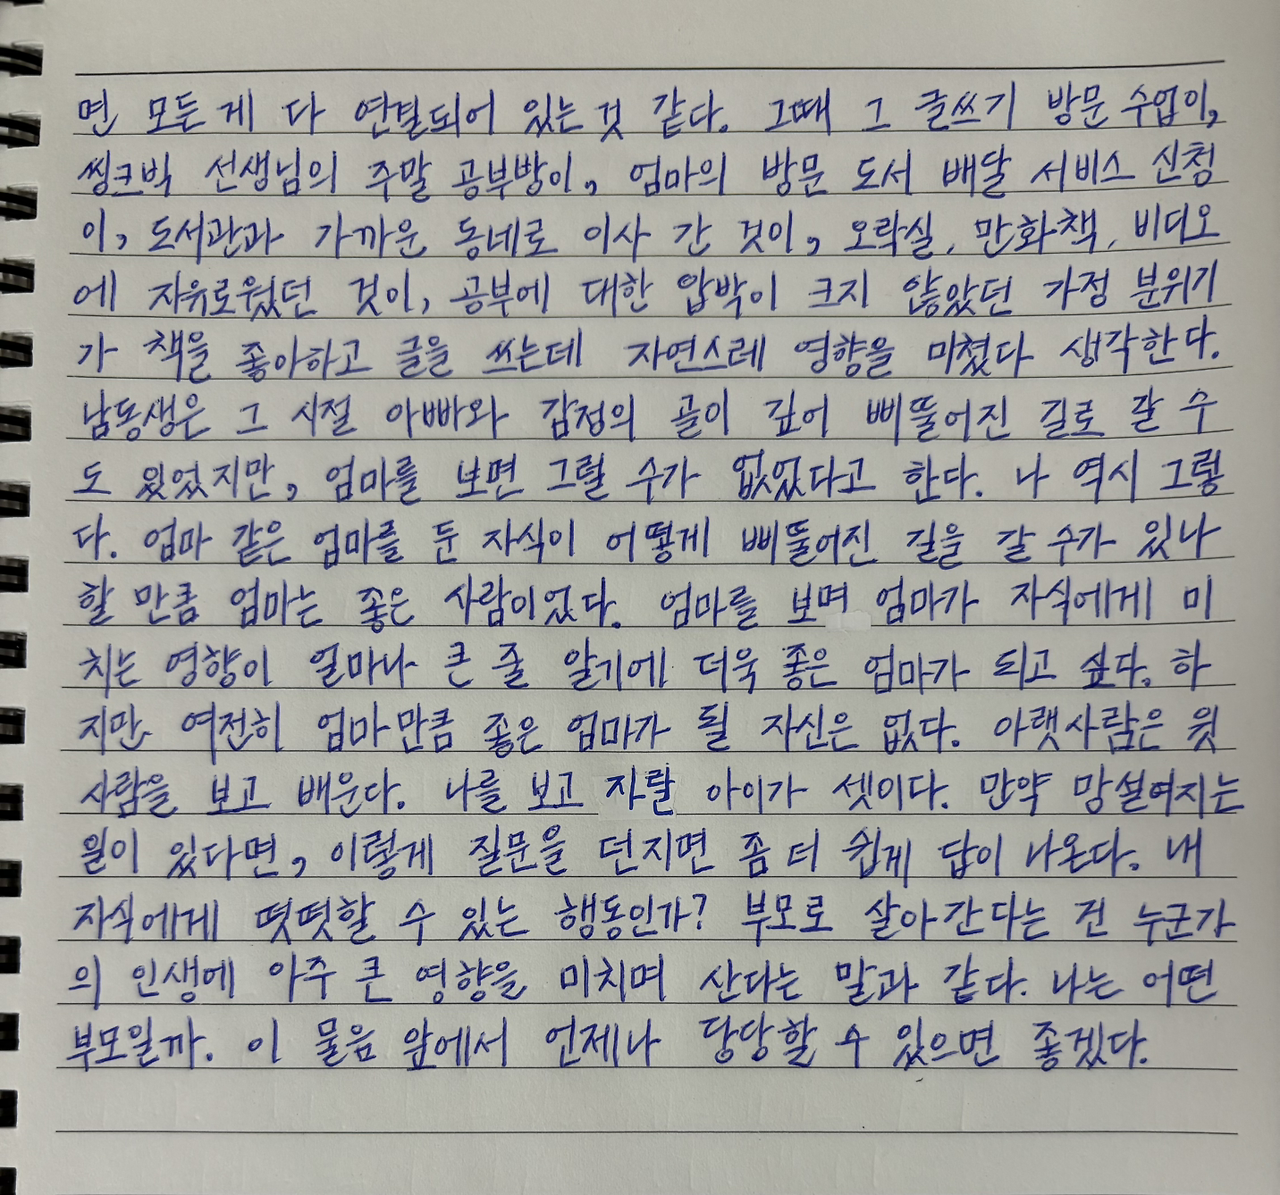 면 모든 게 다 연결되어 있는 것 같다. 그때 그 글쓰기 방문 수업이,
씽크빅 선생님의 주말 공부방이, 엄마의 방문 도서 배달 서비스 신청
이, 도서관과 가까운 동네로 이사 간 것이, 오락실, 만화책, 비디오
에 자유로웠던 것이, 공부에 대한 압박이 크지 않았던 가정 분위기
가 책을 좋아하고 글을 쓰는데 자연스레 영향을 미쳤다 생각한다.
남동생은 그 시절 아빠와 감정의 골이 깊어 삐뚤어진 길로 갈 수
도 있었지만, 엄마를 보면 그럴 수가 없었다고 한다. 나 역시 그렇
다. 엄마 같은 엄마를 둔 자식이 어떻게 삐뚤어진 길을 갈 수가 있나
할 만큼 엄마는 좋은 사람이었다. 엄마를 보며 엄마가 자식에게 미
치는 영향이 얼마나 큰 줄 알기에 더욱 좋은 엄마가 되고 싶다. 하
지만 여전히 엄마만큼 좋은 엄마가 될 자신은 없다. 아랫사람은 윗
사람을 보고 배운다. 나를 보고 자랄 아이가 셋이다. 만약 망설여지는
일이 있다면, 이렇게 질문을 던지면 좀 더 쉽게 답이 나온다. 내
자식에게 떳떳할 수 있는 행동인가? 부모로 살아간다는 건 누군가
의 인생에 아주 큰 영향을 미치며 산다는 말과 같다. 나는 어떤
부모일까. 이 물음 앞에서 언제나 당당할 수 있으면 좋겠다.